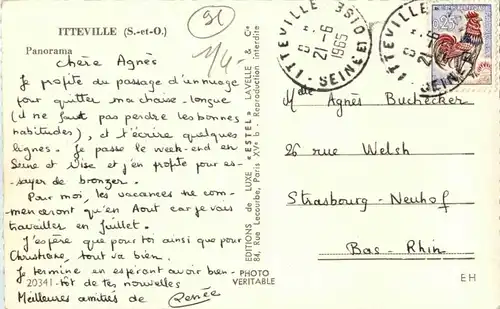 ITTEVILLE (S.-et-O.)
Panorama
91
Chère Agnès
Je profite du passage d'un nuage
pour quitter ma chaise-longue
(il ne faut pas perdre les bonnes
habitudes), et t'écrire quelques
lignes. Je passe le week-end en
Seine et Oise et j'en profite pour es-
sayer de bronzer.
Pour moi, les vacances ne com-
menceront qu'en Aout car je vais
travailler en Juillet.
J'espère que pour toi ainsi que pour
Christiane, tout va bien.
Je termine en espérant avoir bien-
20341 - tôt de tes nouvelles
Meilleures amitiés de Renée
EDITIONS de LUXE "ESTEL" LAVELLE & Cie
84, Rue Lecourbe, Paris XVe b - Reproduction interdite
PHOTO
VERITABLE
ITTEVILLE
21-6
1965
SEINE ET OISE
ITTEVILLE
21-6
SEINE
0,25
Mlle Agnès Buchecker
26 rue Welsh
Strasbourg-Neuhof
Bas-Rhin
EH